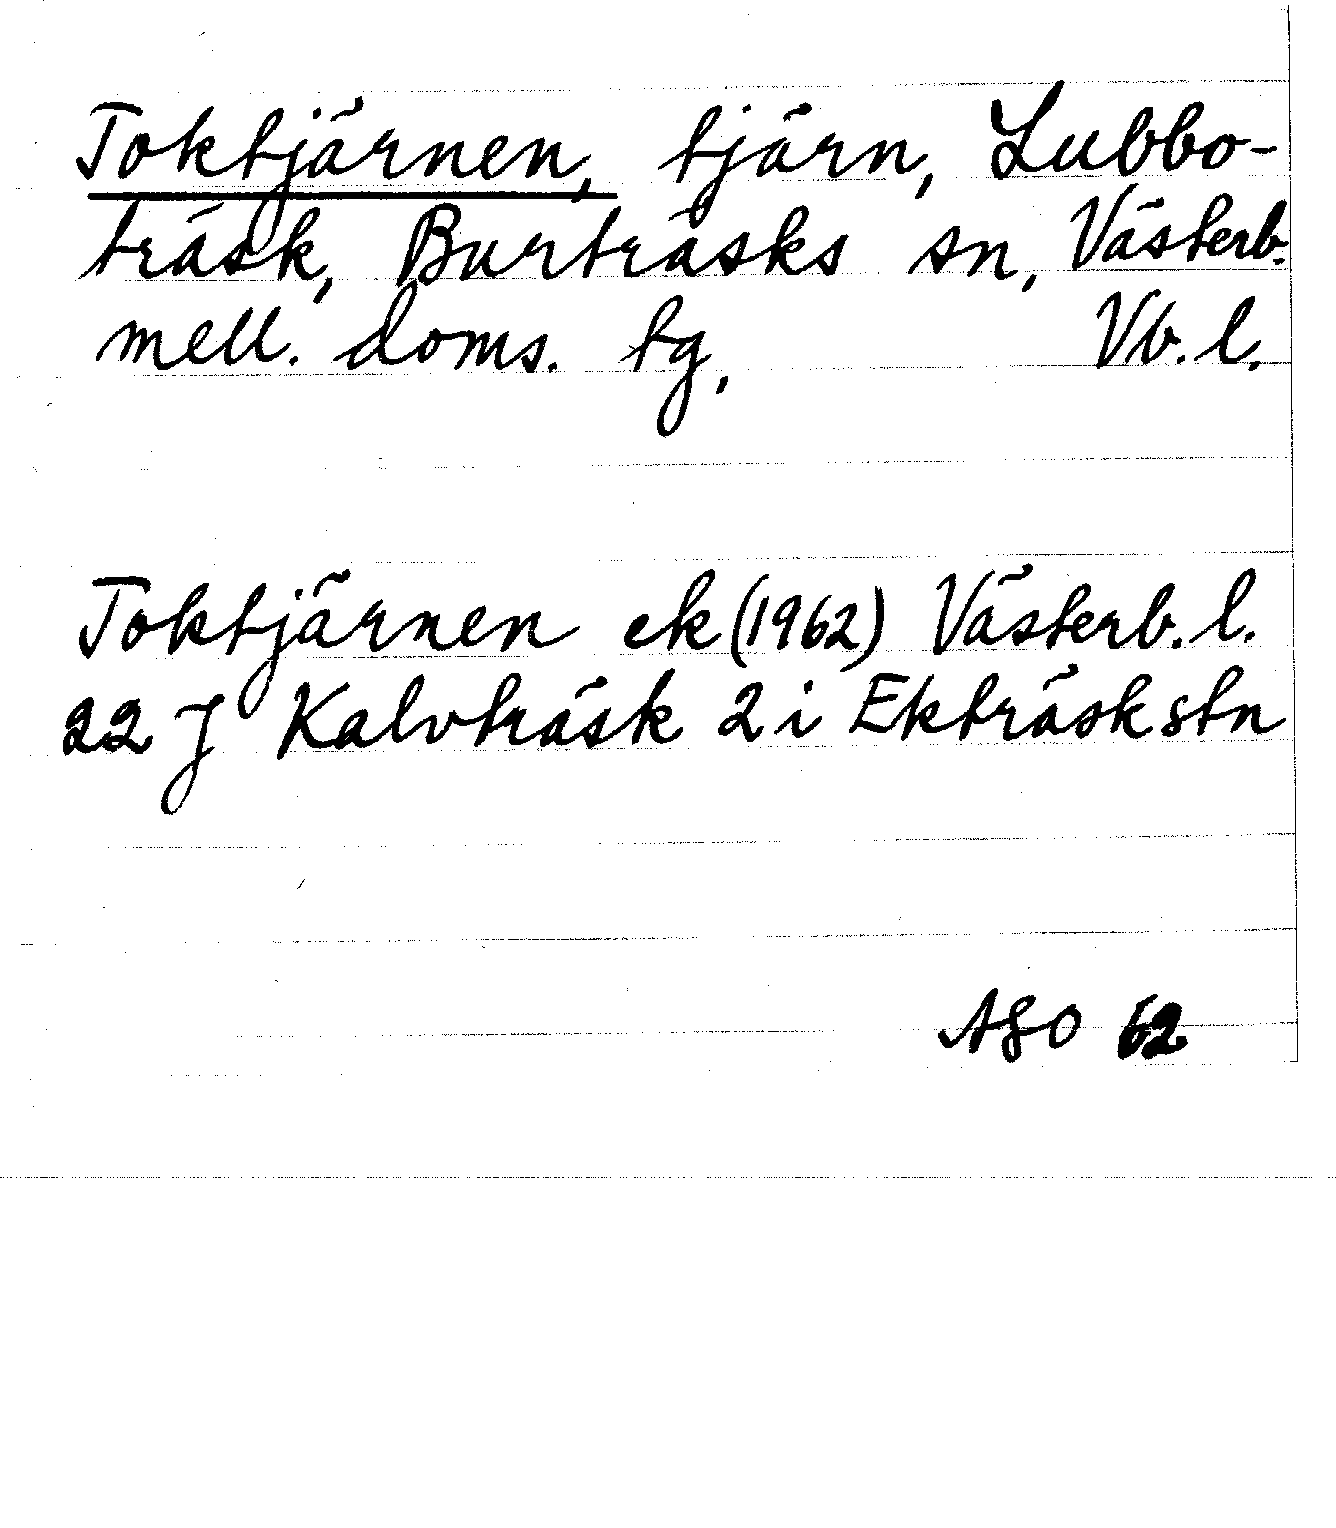 Toktjärnen, tjärn, Lubbo-
träsk, Burträsks sn, Västerb.
mell. doms. tg, Vb. l.
Toktjärnen ek (1962) Västerb. l.
22 J Kalvträsk 2 i Ekträsk stn
ASO 62